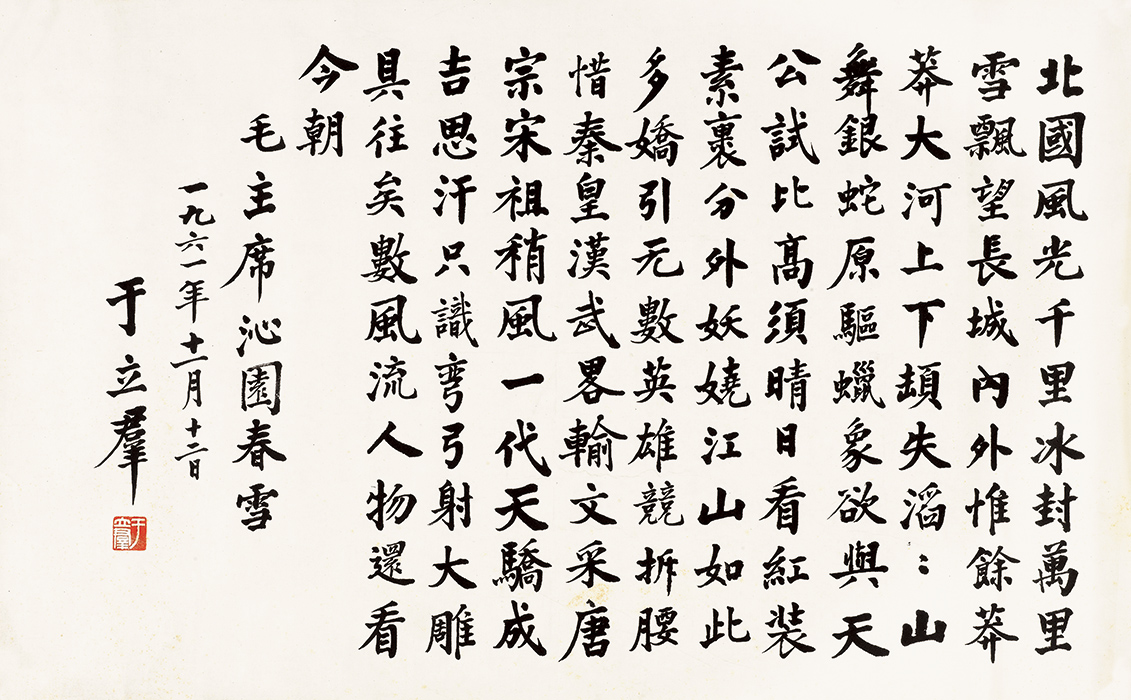 北國風光千里冰封萬里
雪飄望長城內外惟餘莽
莽大河上下頓失滔〻山
舞銀蛇原驅蠟象欲與天
公試比高須晴日看紅裝
素裹分外妖嬈江山如此
多嬌引无數英雄競折腰
惜秦皇漢武畧輸文采唐
宗宋祖稍風一代天驕成
吉思汗只識彎弓射大雕
具往矣數風流人物還看
今朝
毛主席沁園春雪
一九六一年十一月十二日
于立羣
于立羣